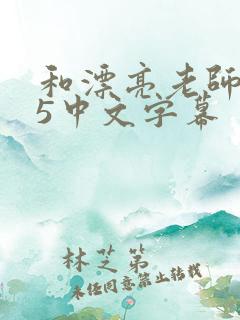 和漂亮老師
5中文字幕
林芝第
未经同意禁止转载